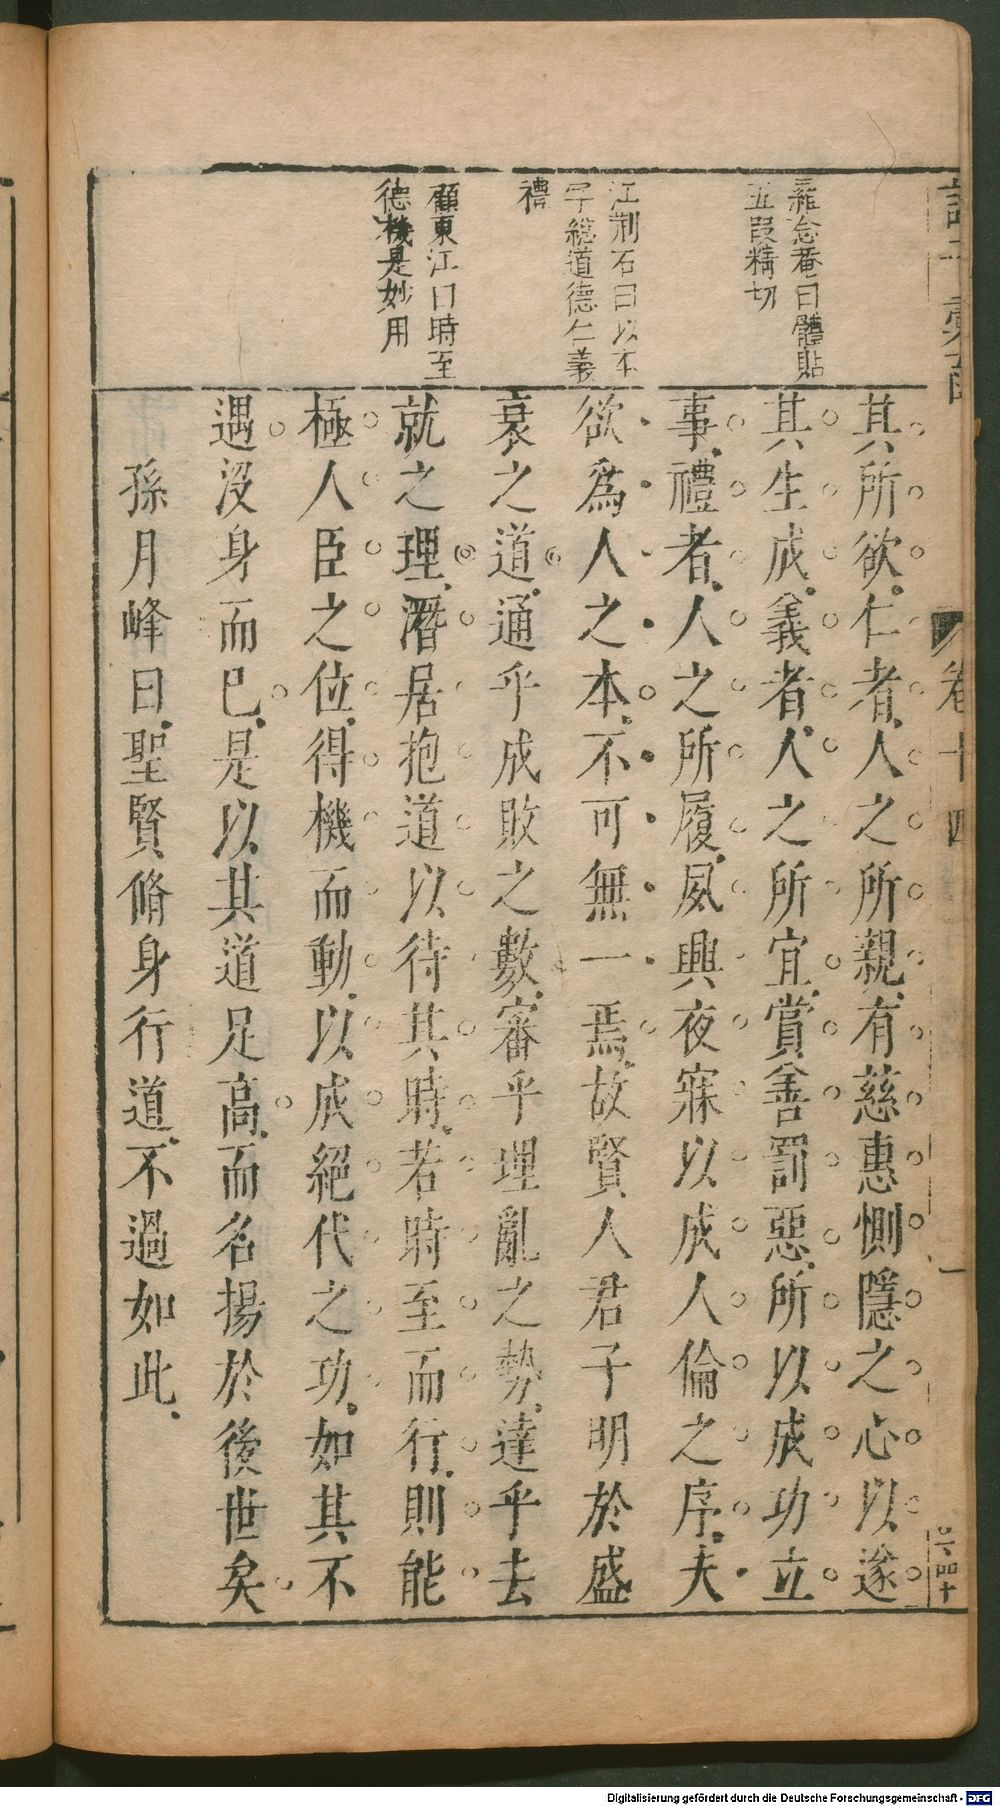 羅念菴曰體貼
五段精切
江荆石曰以本
字總道德仁義
禮
顧東江曰時至
德機是妙用
其所欲仁者人之所親有慈惠惻隱之心以遂
其生成義者人之所宜賞善罰惡所以成功立
事禮者人之所履夙興夜寐以成人倫之序夫
欲爲人之本不可無一焉故賢人君子明於盛
衰之道通乎成敗之數審乎理亂之勢達乎去
就之理潛居抱道以待其時若時至而行則能
極人臣之位得機而動以成絕代之功如其不
遇沒身而已是以其道足高而名揚於後世矣
孫月峰曰聖賢脩身行道不過如此
卷十四
Digitalisierung gefördert durch die Deutsche Forschungsgemeinschaft - DFG